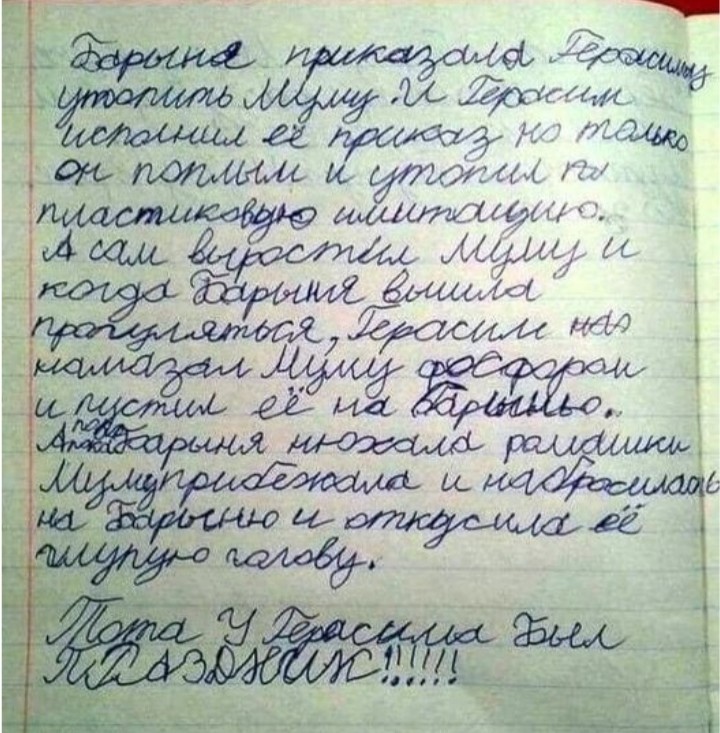 Барыня приказала Герасиму
утопить Муму. И Герасим
исполнил её приказ но только
он поплыл и утопил
пластиковую имитацию.
А сам выростел Муму и
когда Барыня вышла
прогуляться, Герасим
намазал Муму фосфаром
и пустил её на Барыньо.
А пока Барыня нюхала ромашки
Муму прибежала и набросилась
на Барыню и откусила её
глупую голову.
Тота У Герасима Был
ПРАЗДНИК!!!!!!